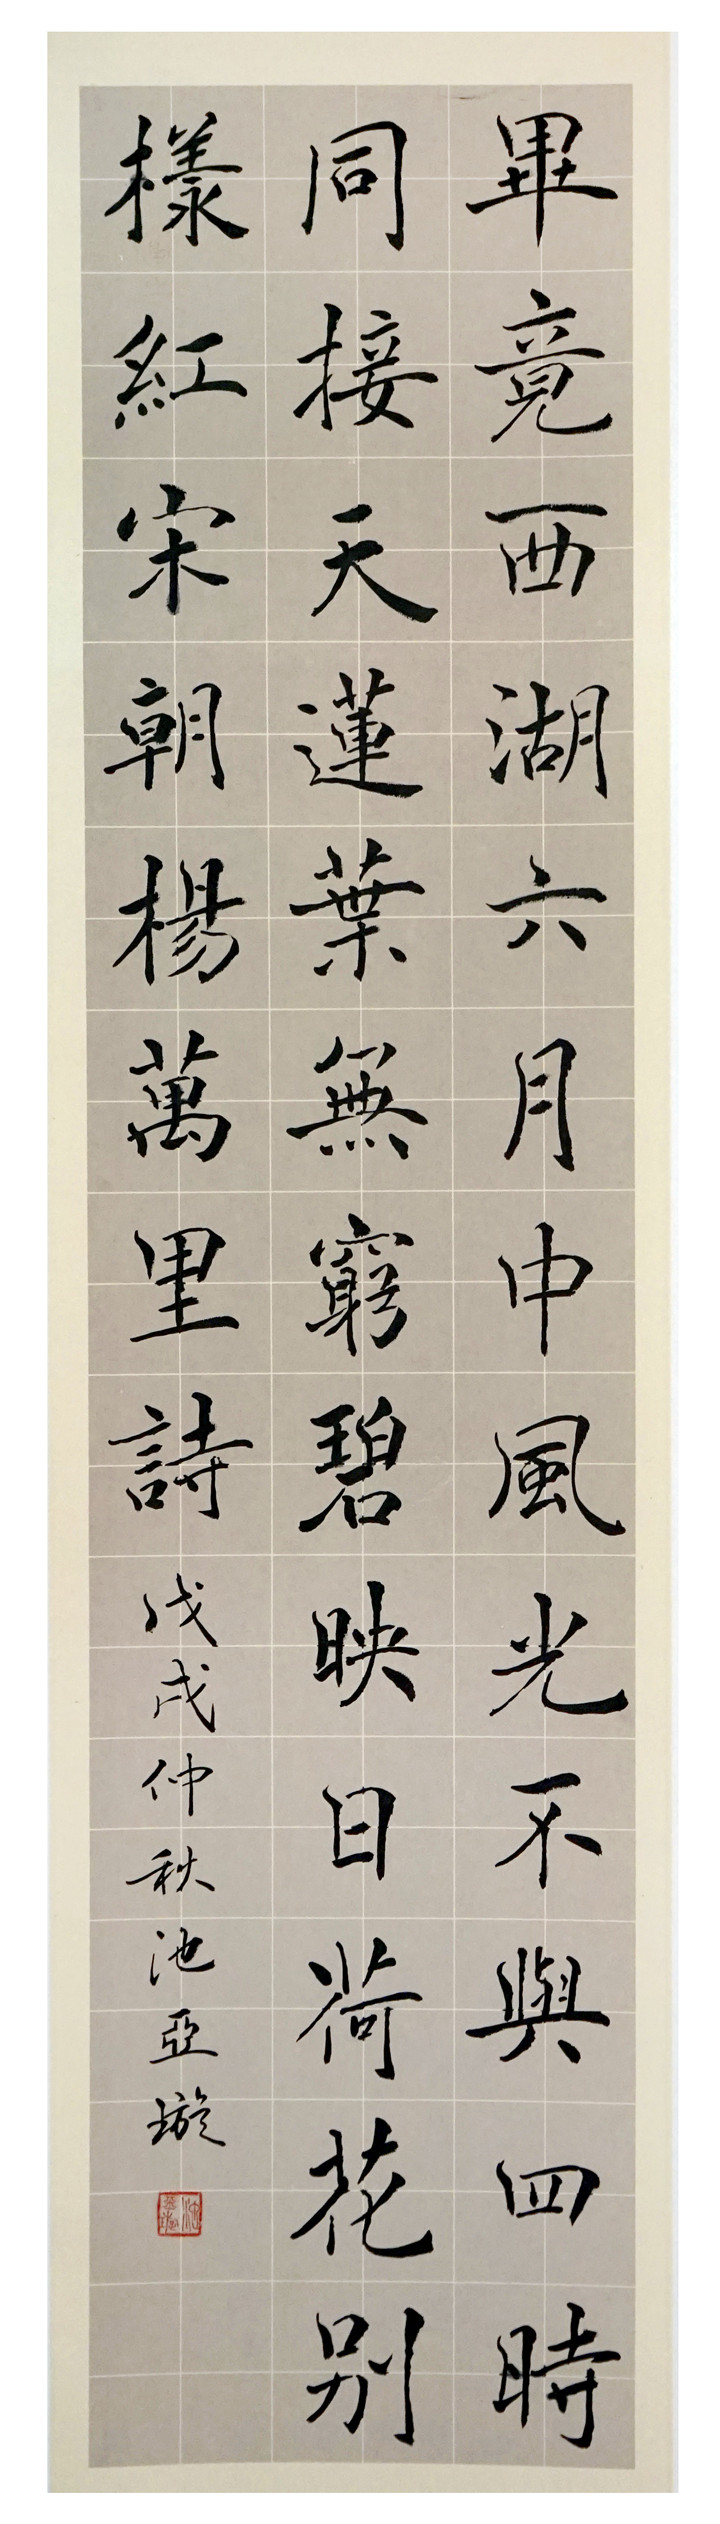 畢竟西湖六月中風光不與四時
同接天蓮葉無窮碧映日荷花別
樣紅宋朝楊萬里詩戊戌仲秋池亞璇